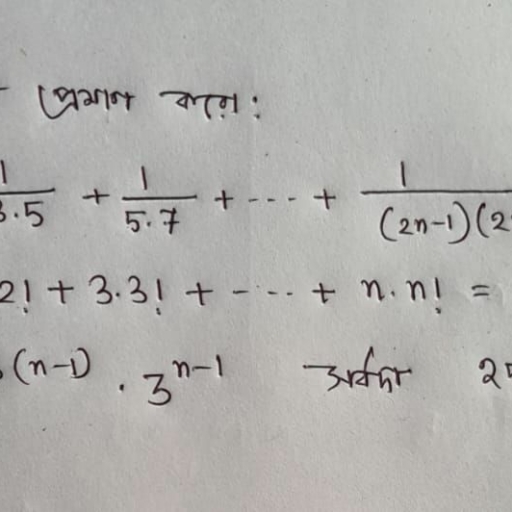 প্রমাণ করো:
1/3.5 + 1/5.7 + ---- + 1/(2n-1)(2
2! + 3.3! + ---- + n.n! =
(n-1) . 3^(n-1) সর্বদা 2